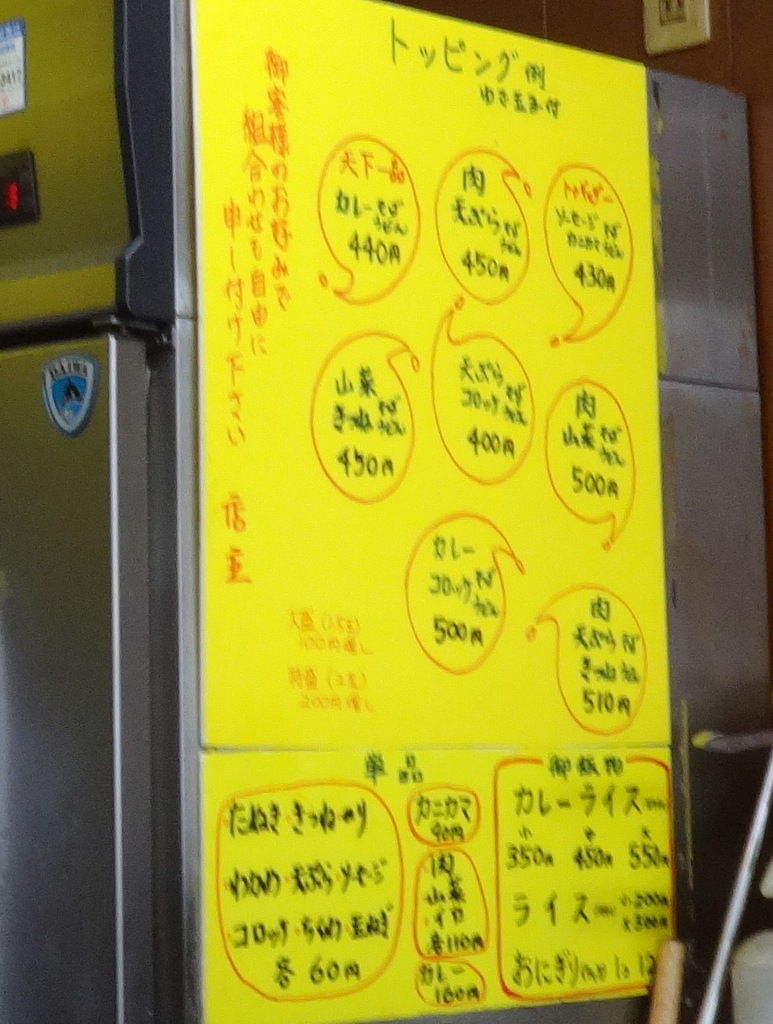 トッピング例
御客様のお好みで
組合わせも自由に
申し付け下さい
店主
天下一品
カレーそばうどん
440円
肉
天ぷらそばうどん
450円
ソーセージ
カニカマ
そばうどん
430円
山菜
きつねそばうどん
450円
天ぷら
コロッケそばうどん
400円
肉
山菜そばうどん
500円
カレー
コロッケそばうどん
500円
肉
天ぷら
きつね
そばうどん
510円
大盛(1.5玉)
100円増し
特盛(2玉)
200円増し
単品
たぬき・きつね・のり
わかめ・天ぷら・ソーセージ
コロッケ・ちくわ・玉ねぎ
各60円
カニカマ
90円
肉
山菜
・イカ
各110円
カレー
160円
御飯物
カレーライス
小 中 大
350円 450円 550円
ライス
小200円
大300円
おにぎり